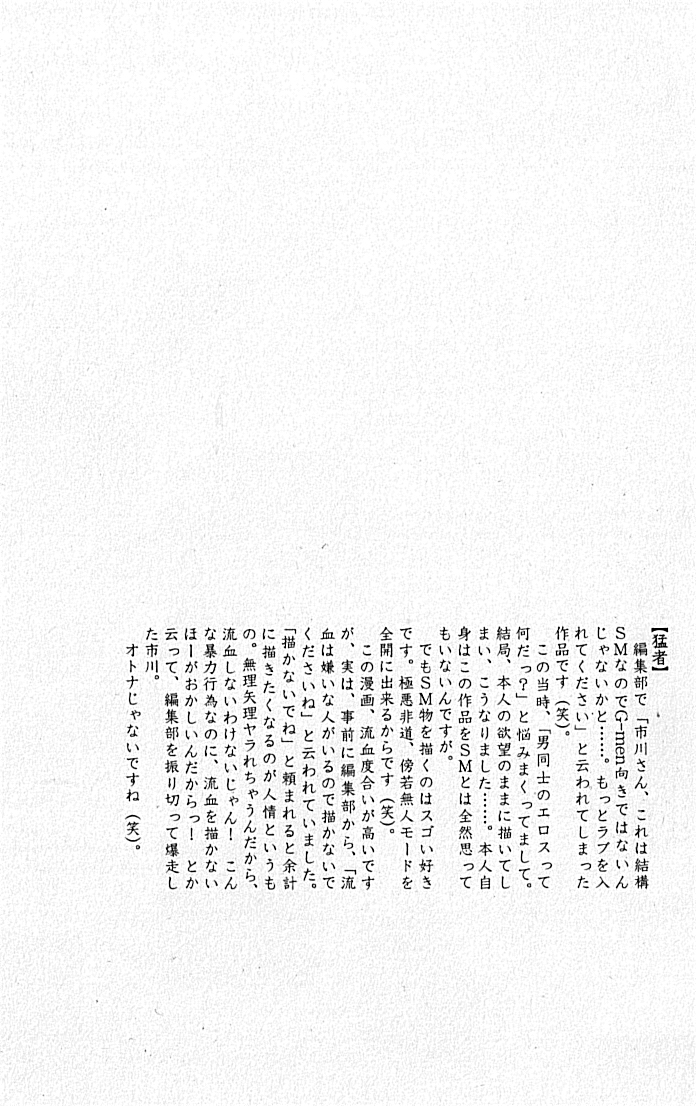 【猛者】
編集部で「市川さん、これは結構
SMなのでG-men向きではないん
じゃないかと……。もっとラブを入
れてください」と云われてしまった
作品です（笑）。
この当時、「男同士のエロスって
何だっ？」と悩みまくってまして。
結局、本人の欲望のままに描いてし
まい、こうなりました……。本人自
身はこの作品をSMとは全然思って
もいないんですが。
でもSM物を描くのはスゴい好き
です。極悪非道、傍若無人モードを
全開に出来るからです（笑）。
この漫画、流血度合いが高いです
が、実は、事前に編集部から、「流
血は嫌いな人がいるので描かないで
くださいね」と云われていました。
「描かないでね」と頼まれると余計
に描きたくなるのが人情というも
の。無理矢理ヤラれちゃうんだから、
流血しないわけないじゃん！　こん
な暴力行為なのに、流血を描かない
ほーがおかしいんだからっ！　とか
云って、編集部を振り切って爆走し
た市川。
オトナじゃないですね（笑）。